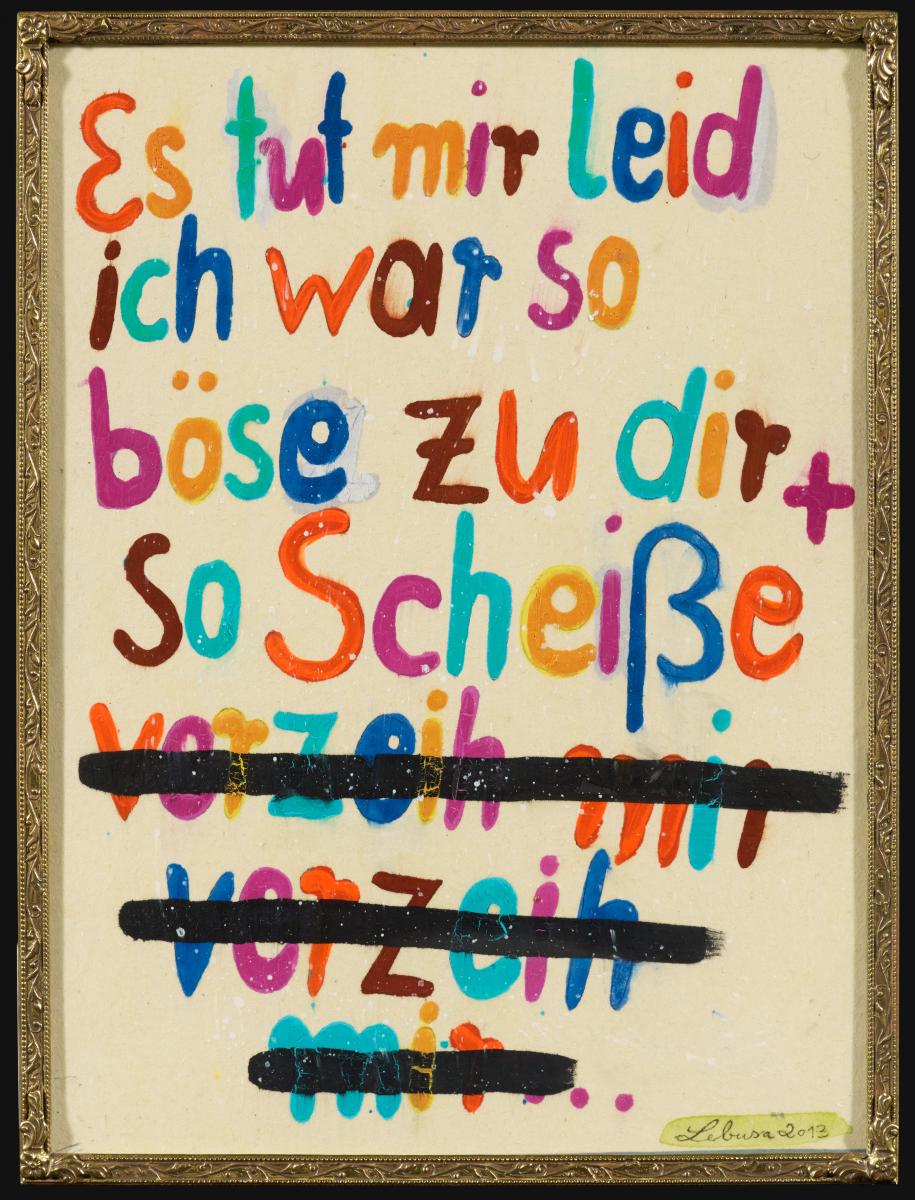 Es tut mir leid
ich war so
böse zu dir +
So Scheiße
verzeih mir
verzeih
mir...
Lebusa 2013